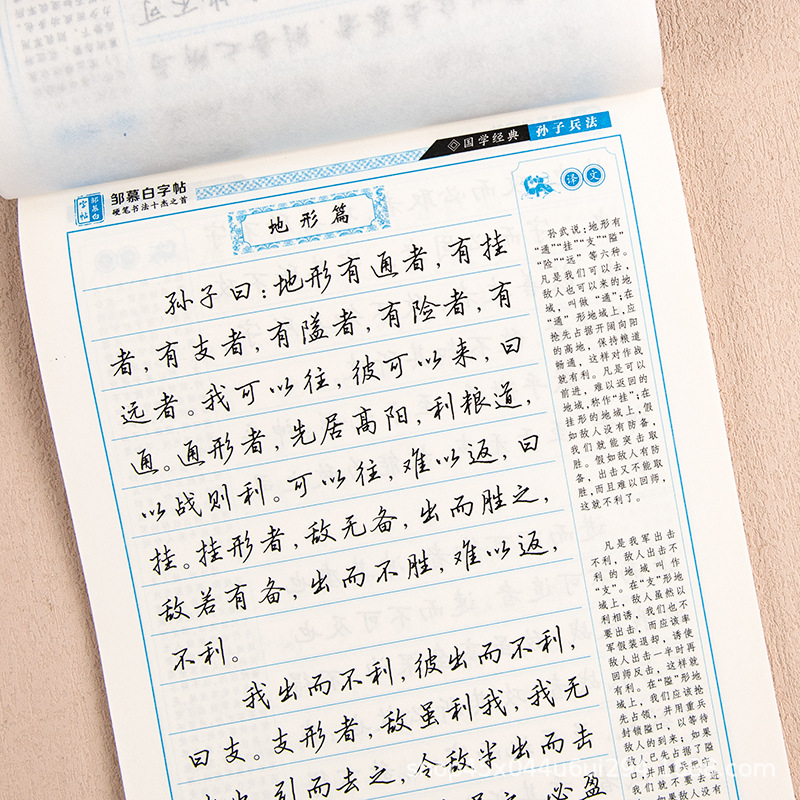 国学经典
孙子兵法
邹慕白
字帖
邹慕白字帖
硬笔书法十杰之首
地形篇
孙子曰：地形有通者，有挂
者，有支者，有隘者，有险者，有
远者。我可以往，彼可以来，曰
通。通形者，先居高阳，利粮道，
以战则利。可以往，难以返，曰
挂。挂形者，敌无备，出而胜之，
敌若有备，出而不胜，难以返，
不利。
我出而不利，彼出而不利，
曰支。支形者，敌虽利我，我无
引而去之，令敌半出而击
必盈
译文
孙武说：地形有
“通”“挂”“支”“隘”
“险”“远”等六种。
凡是我们可以去，
敌人也可以来的地
域，叫做“通”；在
“通”形地域上，应
抢先占据开阔向阳
的高地，保持粮道
畅通，这样对作战
就有利。凡是可以
前进，难以返回的
地域，称作“挂”；在
挂形的地域上，假
如敌人没有防备，
我们就能突击取
胜。假如敌人有防
备，出击又不能取
胜，而且难以回师，
这就不利了。
凡是我军出击
不利，敌人出击不
利的地域叫作
“支”。在“支”形地
域上，敌人虽然以
利相诱，我们也不
要出击，而应该率
军假装退却，诱使
敌人出击一半时再
回师反击，这样就
有利。在“隘”形地
域上，我们应该抢
先占领，并用重兵
封锁隘口，以等待
敌人的到来；如果
敌人已先占据了隘
口，并用重兵把守，
我们就不要去进
如果敌人没有